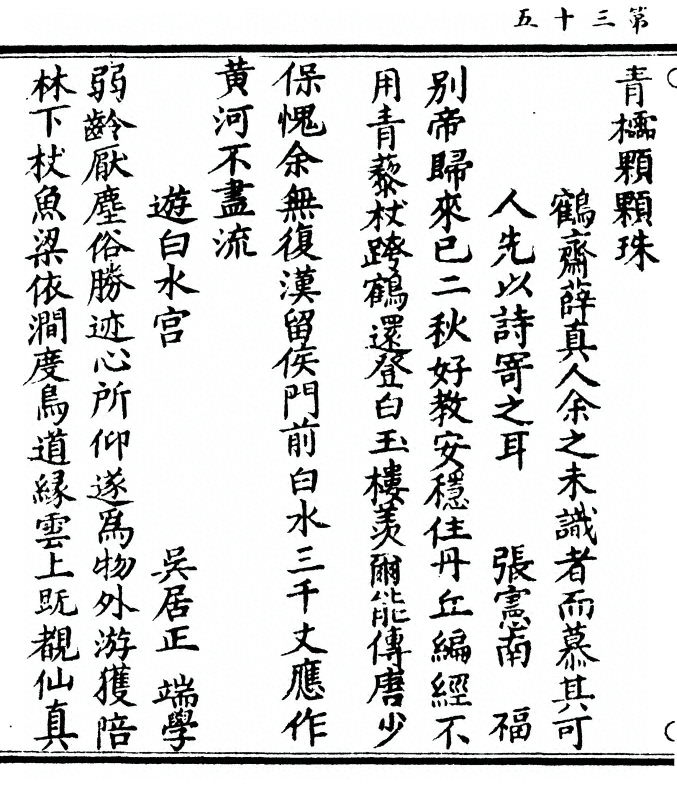 第三十五
青檽顆顆珠
鶴齋薛真人余之未識者而慕其可
人先以詩寄之耳 張憲南 福
别帝歸來已二秋好教安穩住丹丘編經不
用青藜杖跨鶴還登白玉樓羡爾能傳唐少
保愧余無復漢留侯門前白水三千丈應作
黄河不盡流
遊白水宫 吳居正 端學
弱齡厭塵俗勝迹心所仰遂爲物外游獲陪
林下杖魚梁依澗度鳥道緣雲上既覩仙真